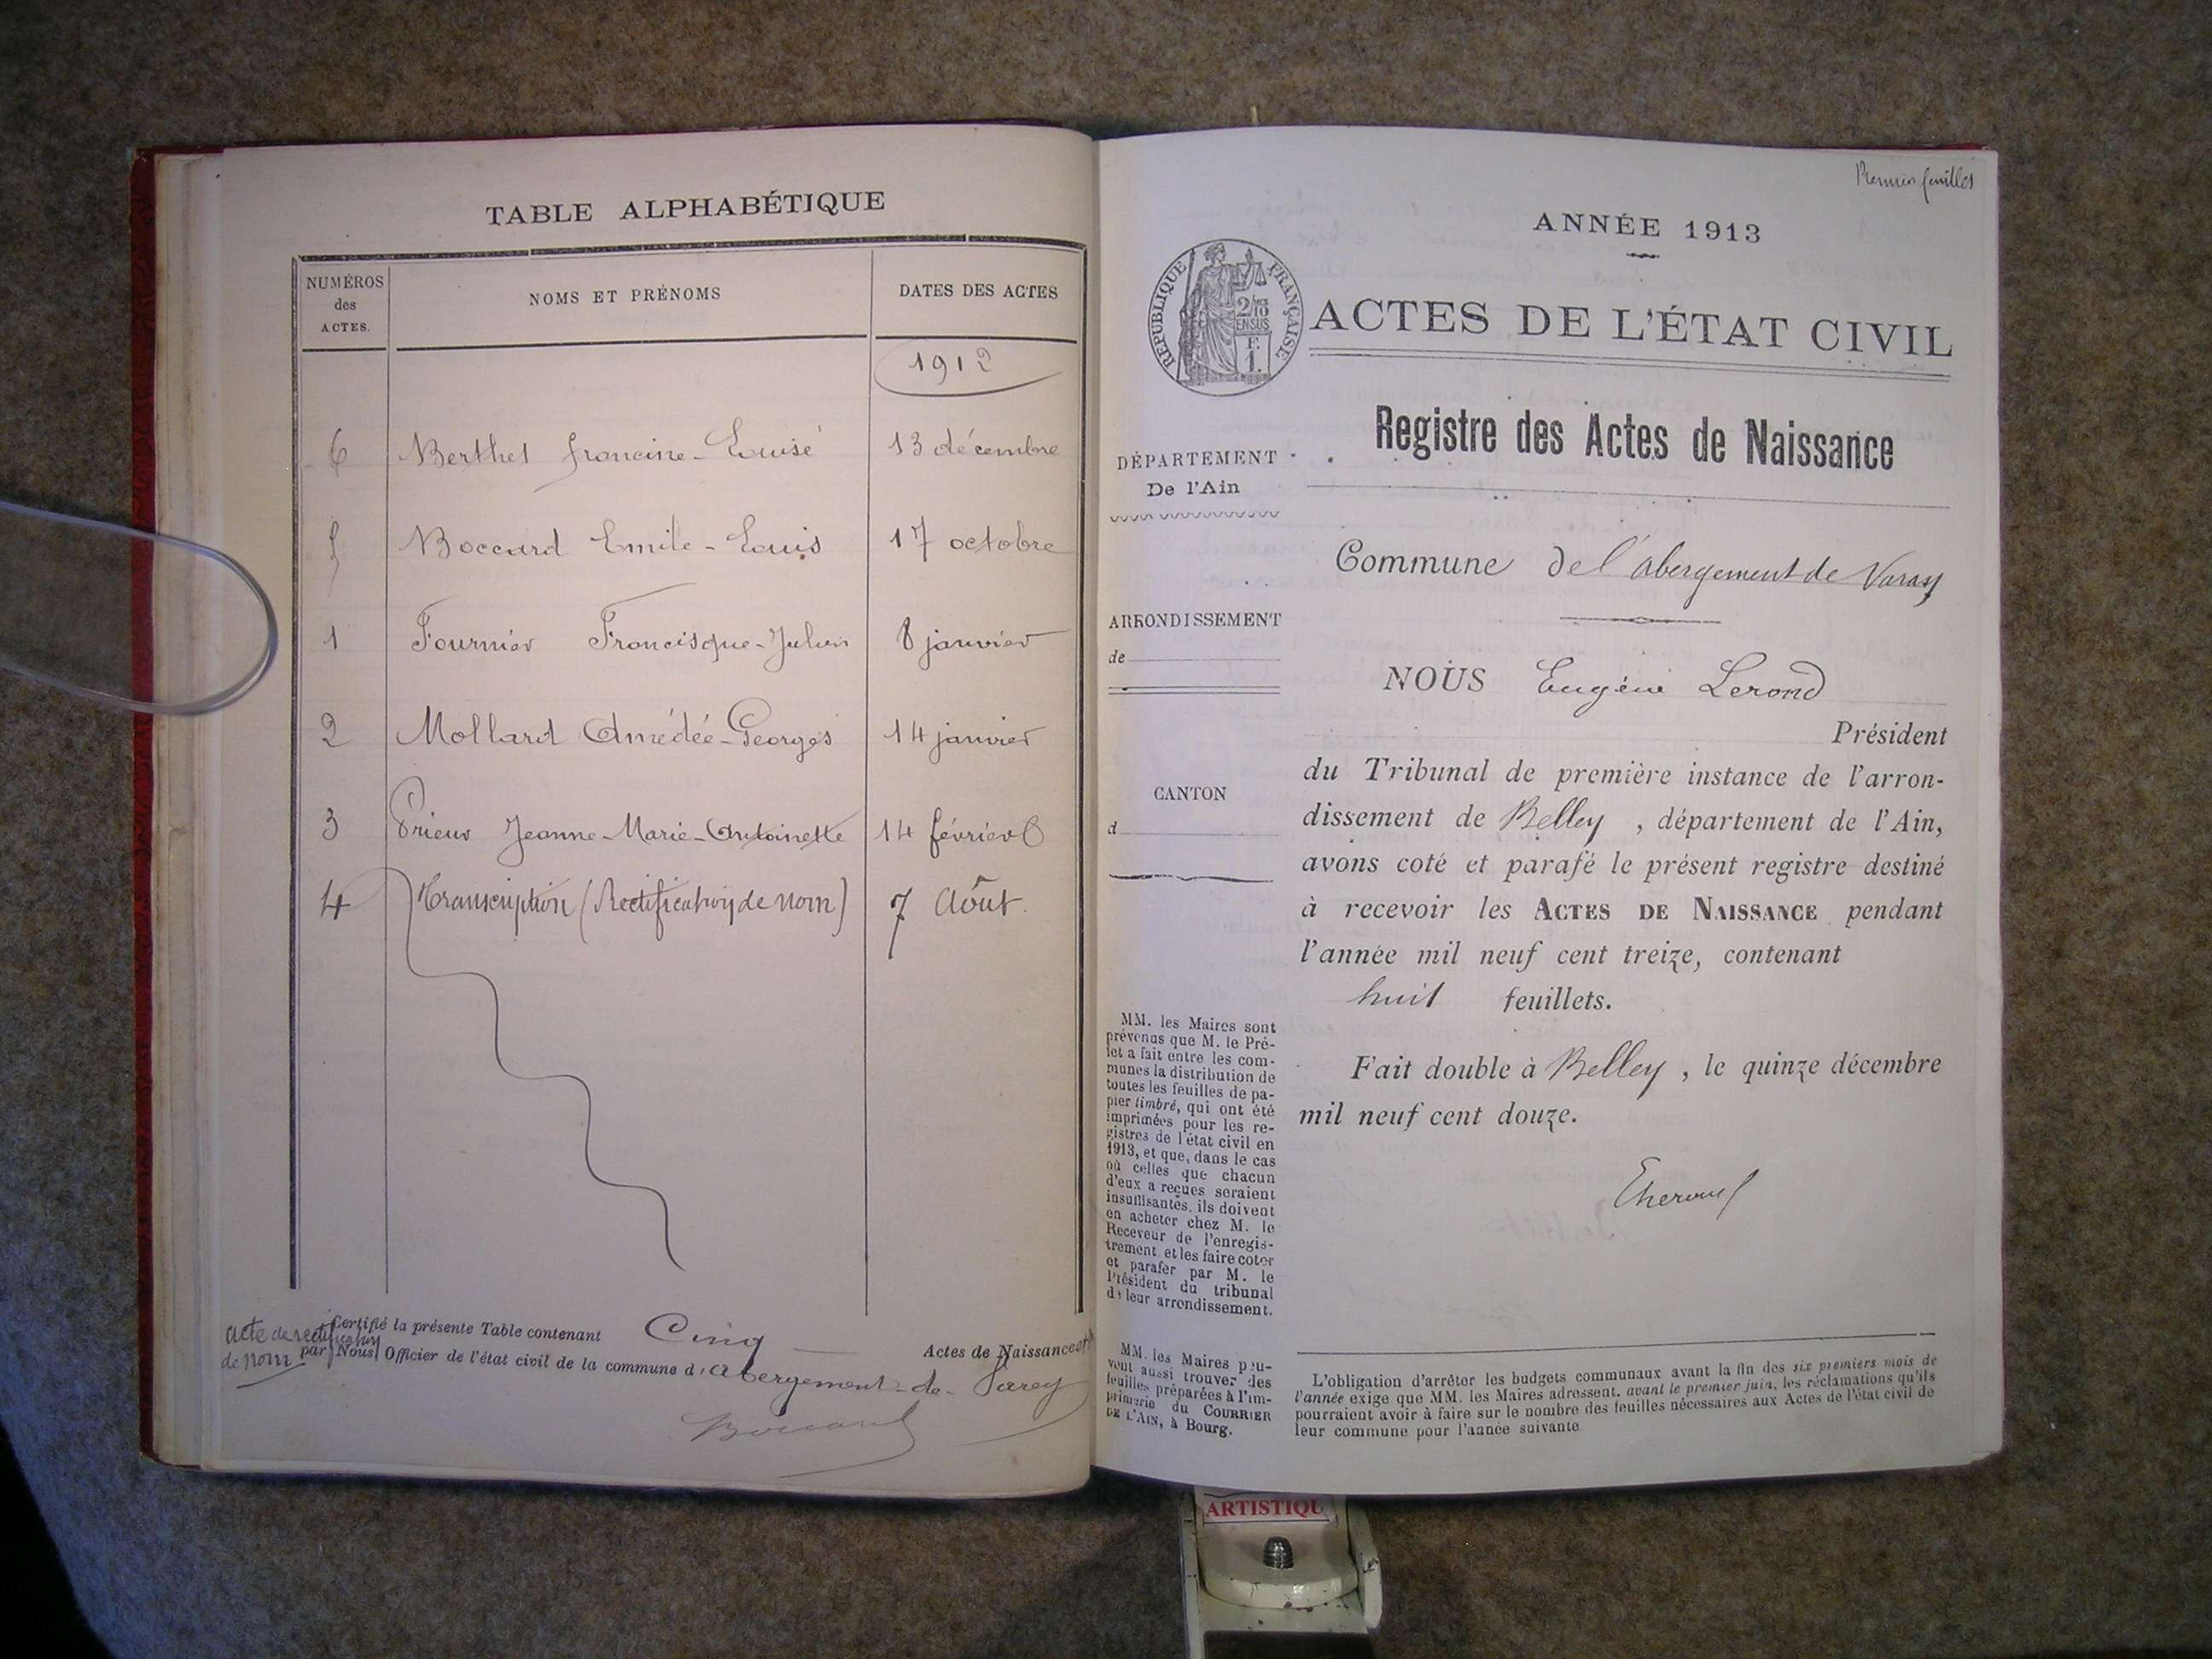 TABLE ALPHABÉTIQUE
NUMÉROS des ACTES.
NOMS ET PRÉNOMS
DATES DES ACTES
1912
6 Berthet Francine-Louise 13 décembre
5 Boccard Emile-Louis 17 octobre
1 Fournier Francisque-Julien 8 janvier
2 Mollard Amédée-Georges 14 janvier
3 Prieur Jeanne-Marie-Antoinette 14 février
4 Transcription (Rectification de nom) 7 Août.
Certifié la présente Table contenant Cinq Actes de Naissance et
acte de rectification
de nom
par Nous Officier de l'état civil de la commune d'Abergement-de-Varey
Boccard
Premier feuillet
ANNÉE 1913
RÉPUBLIQUE FRANÇAISE
2/10
EN SUS
F.
1.
ACTES DE L'ÉTAT CIVIL
Registre des Actes de Naissance
DÉPARTEMENT
De l'Ain
Commune de l'abergement de Varey
ARRONDISSEMENT
de
CANTON
d
NOUS Eugène Lerond
Président
du Tribunal de première instance de l'arron-
dissement de Belley, département de l'Ain,
avons coté et parafé le présent registre destiné
à recevoir les ACTES DE NAISSANCE pendant
l'année mil neuf cent treize, contenant
huit feuillets.
Fait double à Belley, le quinze décembre
mil neuf cent douze.
MM. les Maires sont
prévenus que M. le Pré-
fet a fait entre les com-
munes la distribution de
toutes les feuilles de pa-
pier timbré, qui ont été
imprimées pour les re-
gistres de l'état civil en
1913, et que, dans le cas
où celles que chacun
d'eux a reçues seraient
insuffisantes, ils doivent
en acheter chez M. le
Receveur de l'enregis-
trement et les faire coter
et parafer par M. le
Président du tribunal
de leur arrondissement.
MM. les Maires peu-
vent aussi trouver des
feuilles préparées à l'im-
primerie du COURRIER
DE L'AIN, à Bourg.
L'obligation d'arrêter les budgets communaux avant la fin des six premiers mois de
l'année exige que MM. les Maires adressent, avant le premier juin, les réclamations qu'ils
pourraient avoir à faire sur le nombre des feuilles nécessaires aux Actes de l'état civil de
leur commune pour l'année suivante.
ARTISTIQU